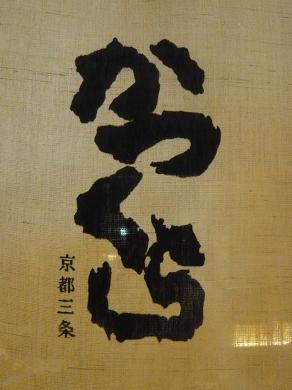 かつくら
京都三条